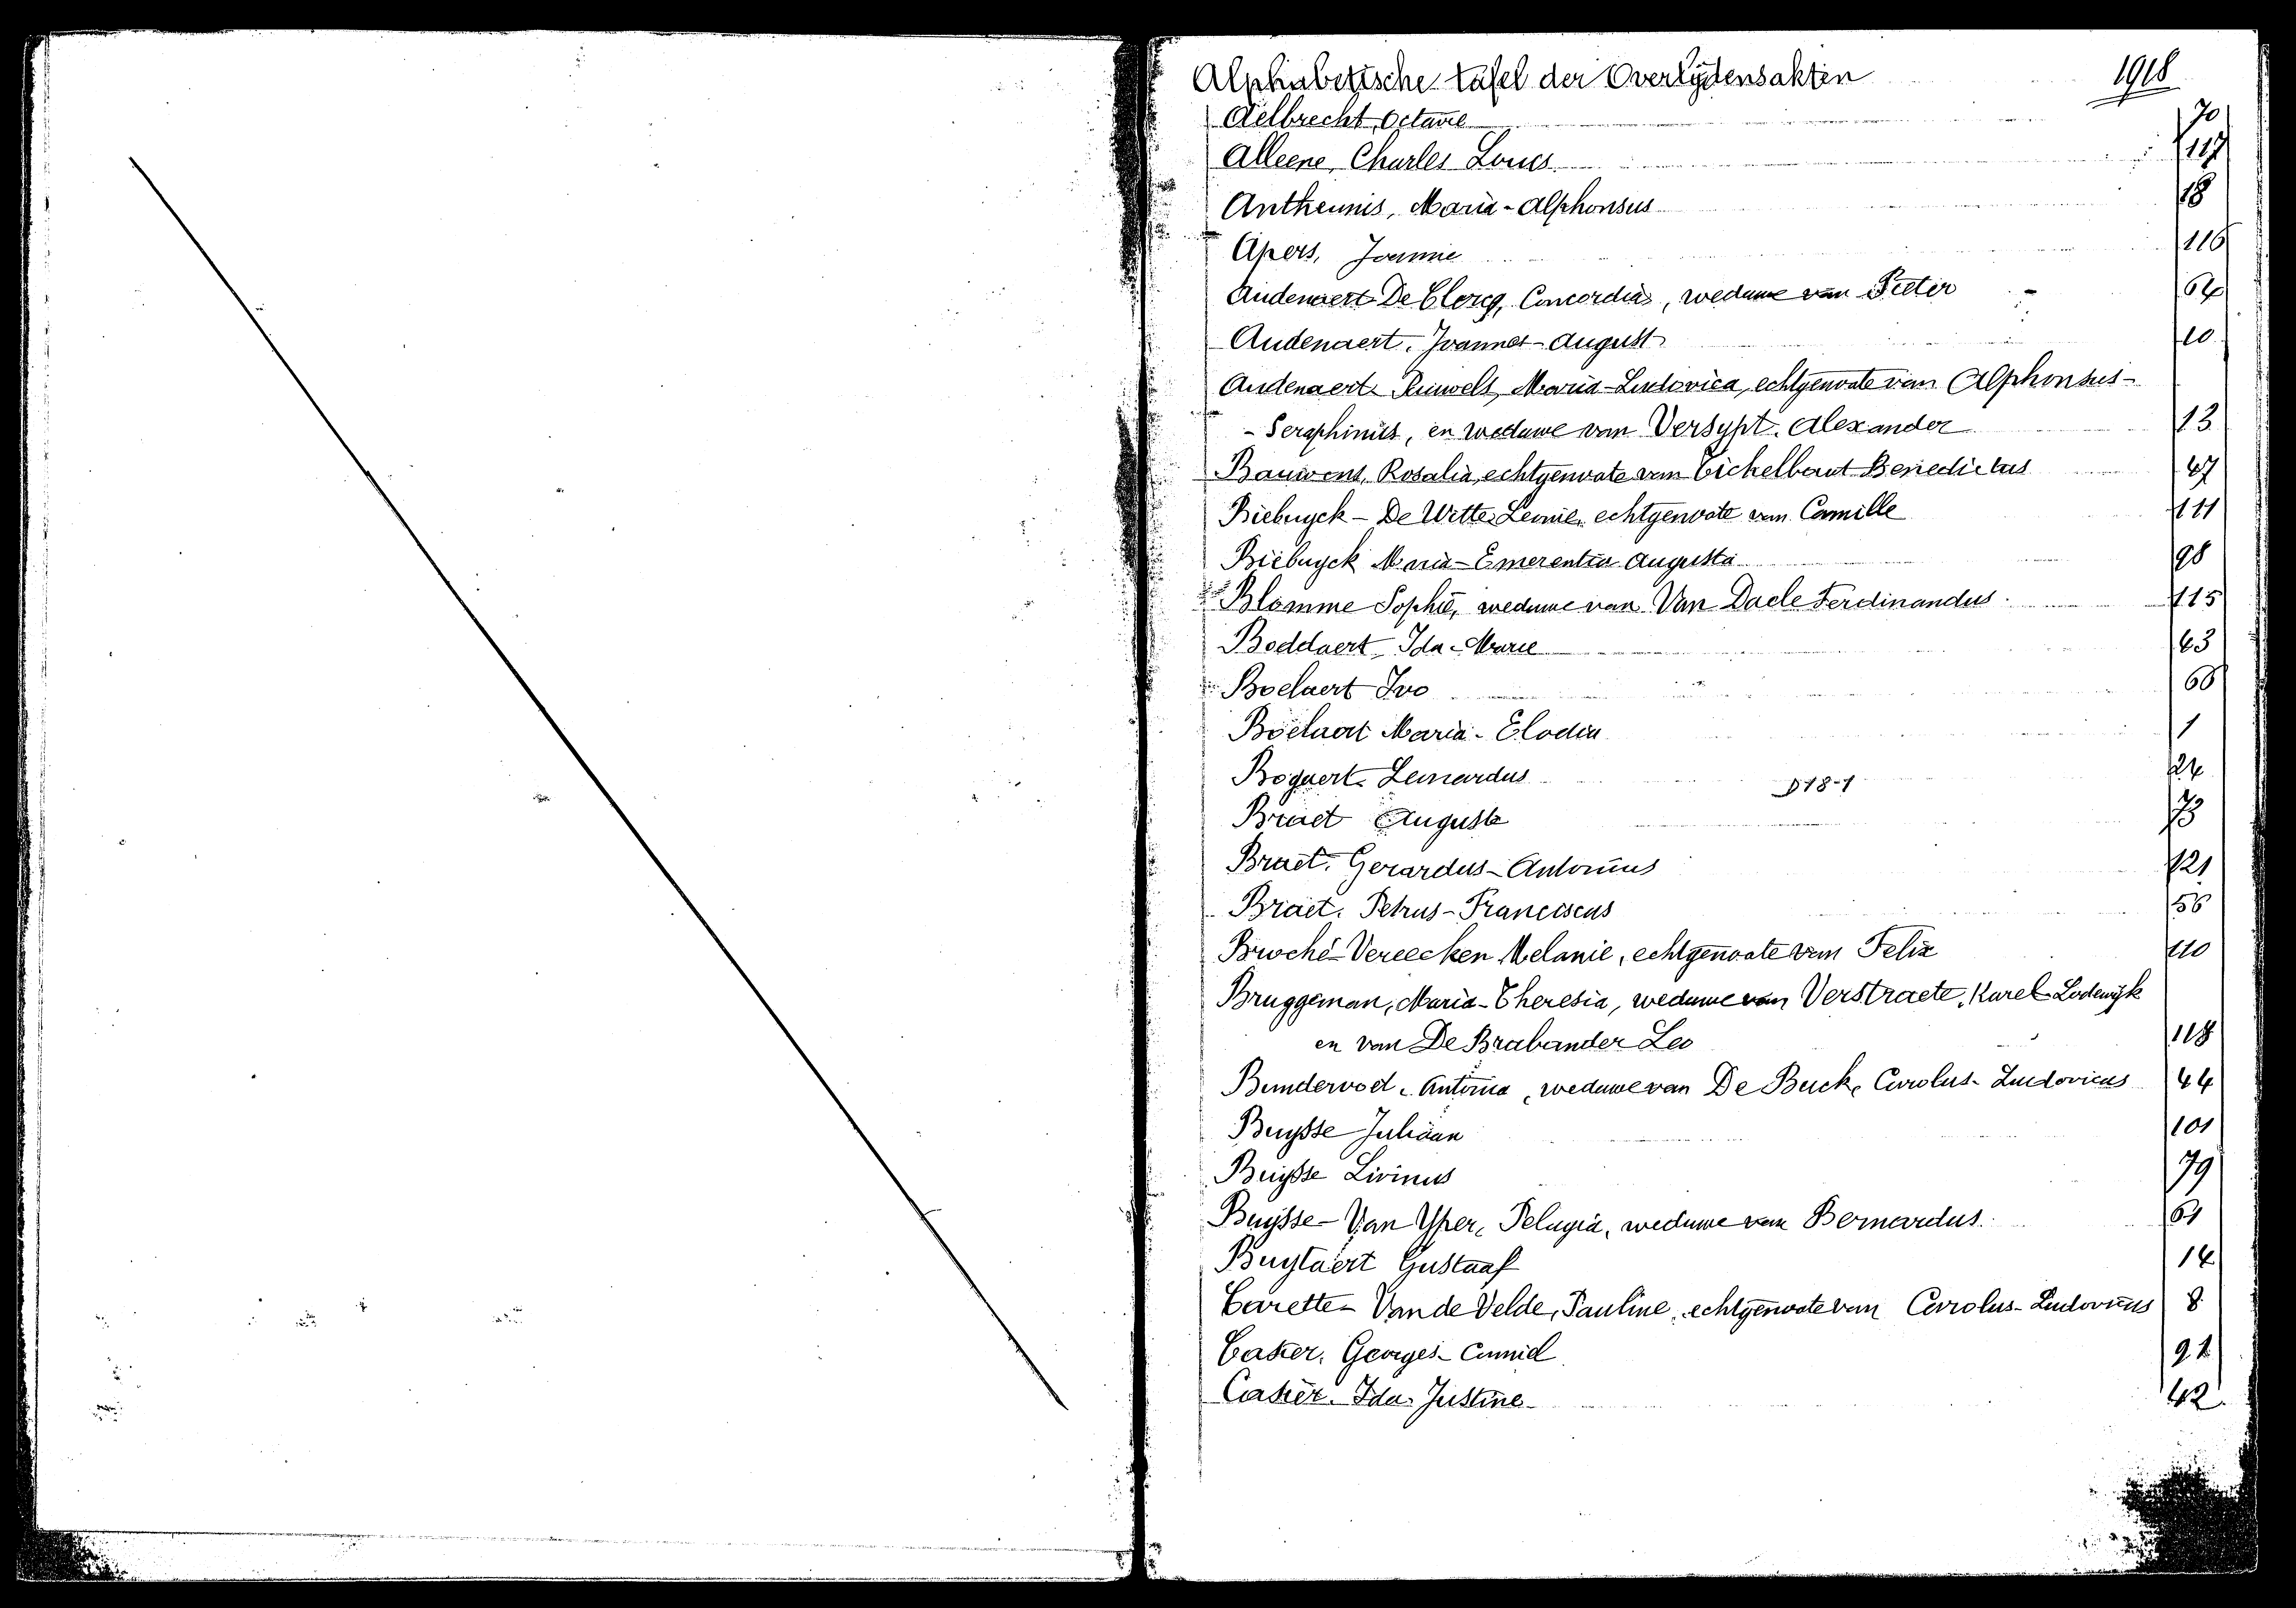 Alphabetische tafel der Overlydensakten 1918
Aelbrecht, Octavie 70
Alleene, Charles Louis 117
Antheunis, Maria-Alphonsus 18
Apers, Jeannie 116
Audenaert-De Clercq, Concordia, weduwe van Pieter - 64
Audenaert, Joannes-August 10
Audenaert-Pauwels, Maria-Ludovica, echtgenoote van Alphonsus-
-Seraphinus, en weduwe van Versypt, Alexander 13
Bauwens, Rosalia, echtgenoote van Eickelbaut Benedictus 47
Biebuyck-De Witte, Leonie, echtgenoote van Camille 111
Biebuyck Maria-Emerentia Augusta 98
Blomme Sophie, weduwe van Van Daele Ferdinandus 115
Boddaert, Ida-Marie 43
Boelaert Ivo 66
Boelaert Maria-Elodia 1
Bogaert, Leonardus 24
D18-1
Braet Augusta 73
Braet, Gerardus-Antonius 121
Braet, Petrus-Franciscus 56
Broché-Vereecken Melanie, echtgenoote van Felix 110
Bruggeman, Maria-Theresia, weduwe van Verstraete, Karel-Lodewijk
en van De Brabander Leo 118
Bundervoet, Antonia, weduwe van De Buck, Carolus-Ludovicus 44
Buysse Juliaan 101
Buysse Livinus 79
Buysse-Van Yper, Pelagia, weduwe van Bernardus 61
Buytaert Gustaaf 14
Carette-Van de Velde, Pauline, echtgenoote van Carolus-Ludovicus 8
Casier, Georges-Camiel 91
Casier, Ida-Justine 42